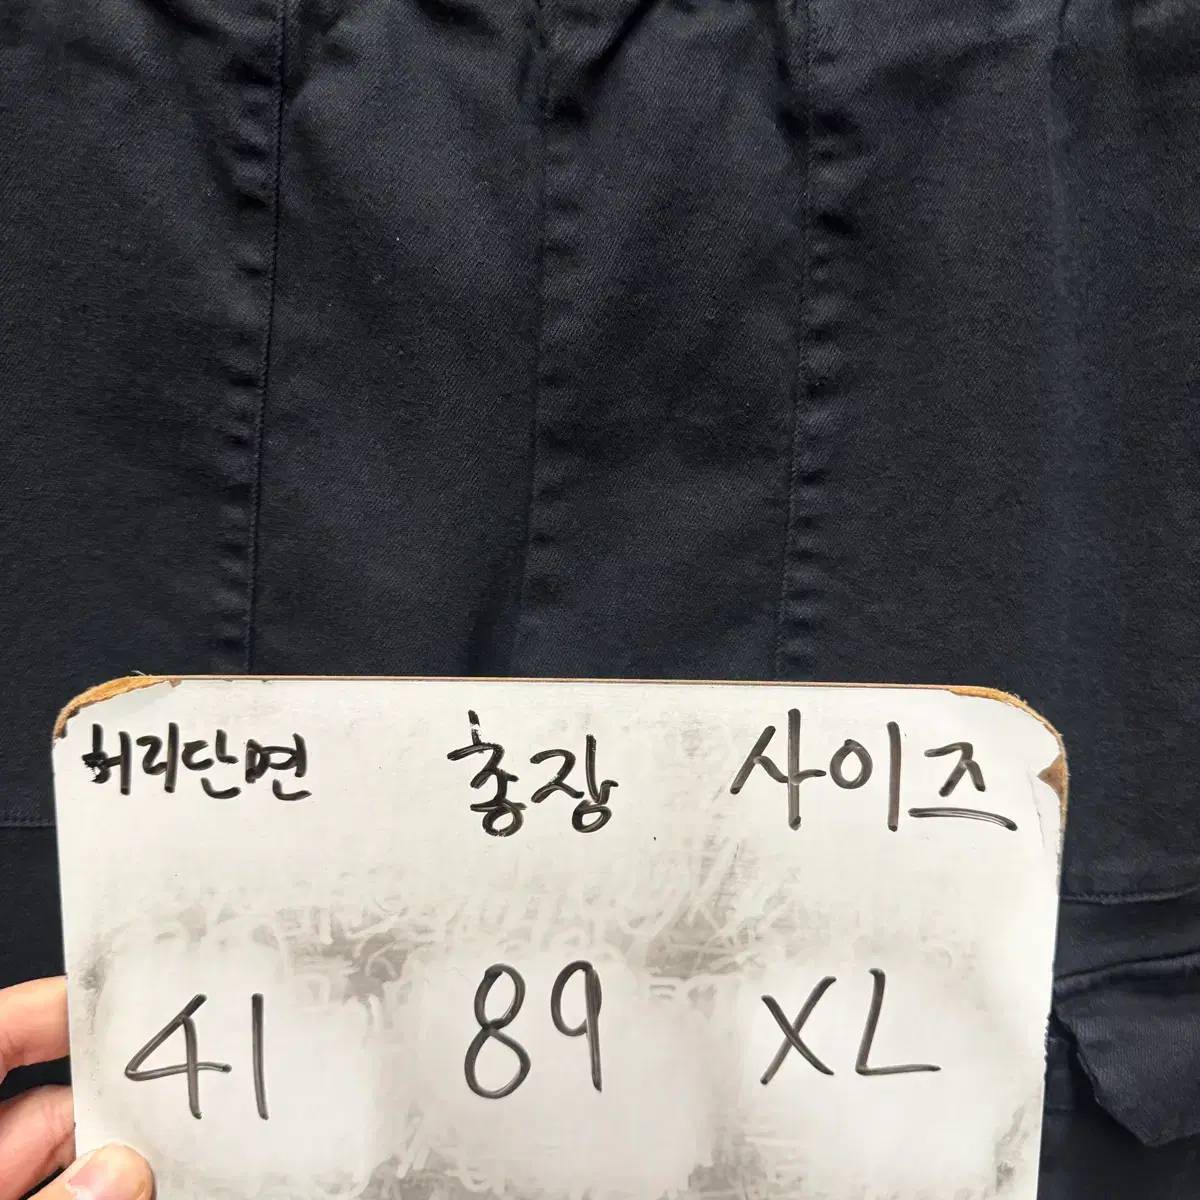 허리단면 총장 사이즈
41 89 XL